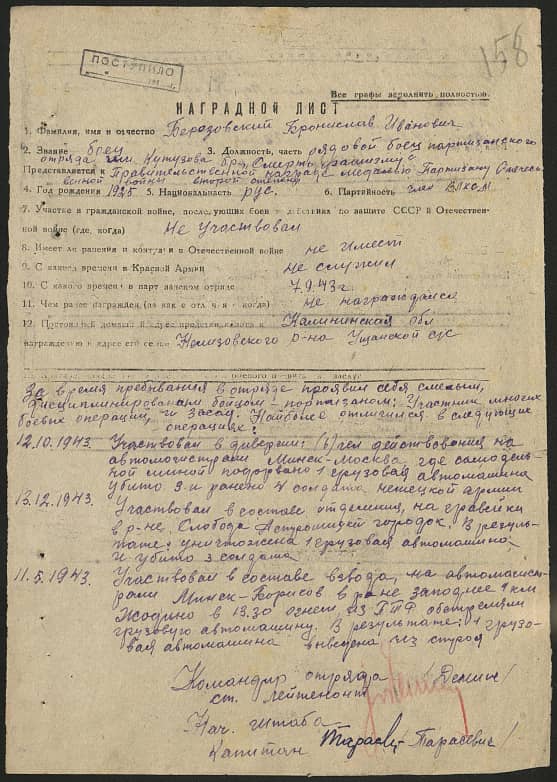 158
ПОСТУПИЛО
Все графы заполнить полностью.
НАГРАДНОЙ ЛИСТ
1. Фамилия, имя и отчество Березовский Бронислав Иванович
2. Звание боец 3. Должность, часть рядовой боец партизанского
отряда им. Кутузова бр. „Смерть фашизму"
Представляется к Правительственной награде медалью Партизану Отечест-
венной войны второй степени
4. Год рождения 1925 5. Национальность рус. 6. Партийность член ВЛКСМ
7. Участие в гражданской войне, последующих боев. действиях по защите СССР и Отечествен-
ной войне (где, когда) Не Участвовал
8. Имеет ли ранения и контузии в Отечественной войне не имеет
9. С какого времени в Красной Армии не служил
10. С какого времени в партизанском отряде 7.9.43 г.
11. Чем ранее награжден (за какие отличия и когда) не награждался
12. Постоянный домашний адрес представляемого к Калининская обл
награждению и адрес его семьи Нелидовского р-на с/с
За время пребывания в отряде проявил себя смелым,
дисциплинированым бойцом - портизаном: Участник многих
боевых операций, и засад. Наиболее отличился в следующих
операциях:
12.10.1943. Участвовал в диверсии: действования на
автомагистрали Минск-Москва где самодель-
ной миной подорвано 1 грузовая автомашина
убито 3 и ранено 4 солдата немецкой армии
13.12.1943. Участвовал в составе отделения, на гравейки
в р-не. Слобода городок. В резуль-
тате: уничтожена 1 грузовая автомашина,
и убито 3 солдата
11.5.1943. Участвовал в составе взвода, на автомагист-
рали Минск-Борисов в р-не западнее 1 км
Жодино в 13.30 огнем из обстреляли
грузовую автомашину. В результате: 1 грузо-
вая автомашина выведена из строя
Командир отряда
ст. лейтенант /Демин/
Нач. штаба
Капитан Тарасевич /Тарасевич/